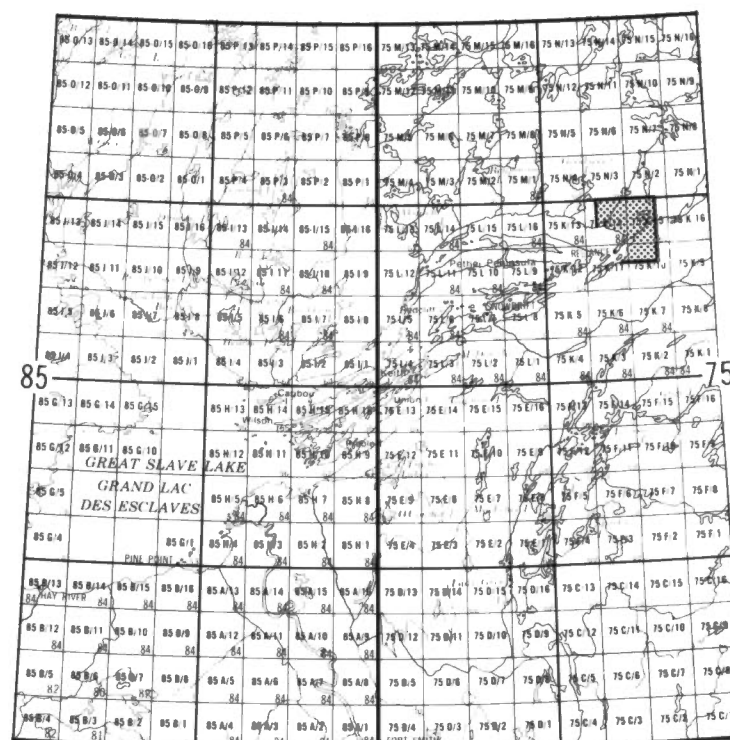 85 O/13 85 O/14 85 O/15 85 O/16 85 P/13 85 P/14 85 P/15 85 P/16 75 M/13 75 M/14 75 M/15 75 M/16 75 N/13 75 N/14 75 N/15 75 N/16
85 O/12 85 O/11 85 O/10 85 O/9 85 P/12 85 P/11 85 P/10 75 M/12 75 M/10 75 M/9 75 N/12 75 N/11 75 N/10 75 N/9
85 O/5 85 O/6 85 O/7 85 O/8 85 P/5 85 P/6 85 P/7 85 P/8 75 M/5 75 M/6 75 M/7 75 M/8 75 N/5 75 N/6 75 N/7 75 N/8
85 O/4 85 O/3 85 O/2 85 O/1 85 P/4 85 P/3 85 P/2 85 P/1 75 M/4 75 M/3 75 M/2 75 M/1 75 N/4 75 N/3 75 N/2 75 N/1
84 84
85 J/13 85 J/14 85 J/15 85 J/16 85 I/13 85 I/14 85 I/15 85 I/16 75 L/14 75 L/15 75 L/16 75 K/13 75 K/16
84 84 84 RELIANCE
Pethei Peninsula
85 J/12 85 J/11 85 J/10 85 J/9 85 I/12 85 I/11 85 I/10 85 I/9 75 L/12 75 L/11 75 L/10 75 L/9 75 K/11 75 K/10 75 K/9
84 84 84
85 J/6 85 J/7 85 J/8 85 I/5 85 I/6 85 I/7 85 I/8 75 L/5 75 L/8 75 K/5 75 K/6 75 K/7 75 K/8
84 84 84 84
85 J/4 85 J/3 85 J/2 85 J/1 85 I/4 85 I/3 85 I/2 85 I/1 75 L/4 75 L/3 75 L/2 75 L/1 75 K/4 75 K/3 75 K/2 75 K/1
84 84 84 Keith 84 84 84 84 84 84
85 75
Caribou Union
85 G/13 85 G/14 85 G/15 85 H/13 85 H/14 85 H/15 85 H/16 75 E/13 75 E/14 75 E/15 75 E/16 75 F/14 75 F/15 75 F/16
Wilson
85 G/12 85 G/11 85 G/10 85 H/12 85 H/11 85 H/10 85 H/9 75 E/12 75 E/11 75 E/10 75 E/9 75 F/11 75 F/10 75 F/9
GREAT SLAVE LAKE
GRAND LAC
DES ESCLAVES
85 G/5 85 H/5 85 H/6 85 H/7 85 H/8 75 E/5 75 E/6 75 E/7 75 F/5 75 F/6 75 F/7 75 F/8
84 84
85 G/4 85 G/1 85 H/4 85 H/3 85 H/2 85 H/1 75 E/4 75 E/3 75 E/2 75 E/1 75 F/3 75 F/2 75 F/1
PINE POINT 84 84 84
85 B/13 85 B/14 85 B/15 85 B/16 85 A/13 85 A/14 85 A/15 85 A/16 75 D/13 75 D/14 75 D/15 75 D/16 75 C/13 75 C/14 75 C/15 75 C/16
84 HAY RIVER 84 84 84 84 84 84
85 B/12 85 B/11 85 B/10 85 B/9 85 A/12 85 A/11 85 A/10 85 A/9 75 D/12 75 D/11 75 D/10 75 D/9 75 C/12 75 C/11 75 C/10 75 C/9
84 84 84 84 84 84 84
85 B/5 85 B/6 85 B/7 85 B/8 85 A/5 85 A/6 85 A/7 85 A/8 75 D/5 75 D/6 75 D/7 75 D/8 75 C/5 75 C/6 75 C/7 75 C/8
82 80 84 84 84 84
85 B/4 85 B/3 85 B/2 85 B/1 85 A/4 85 A/3 85 A/2 85 A/1 75 D/4 75 D/3 75 D/2 75 D/1 75 C/4 75 C/3 75 C/2
82 81 84 84 84 84 FORT SMITH